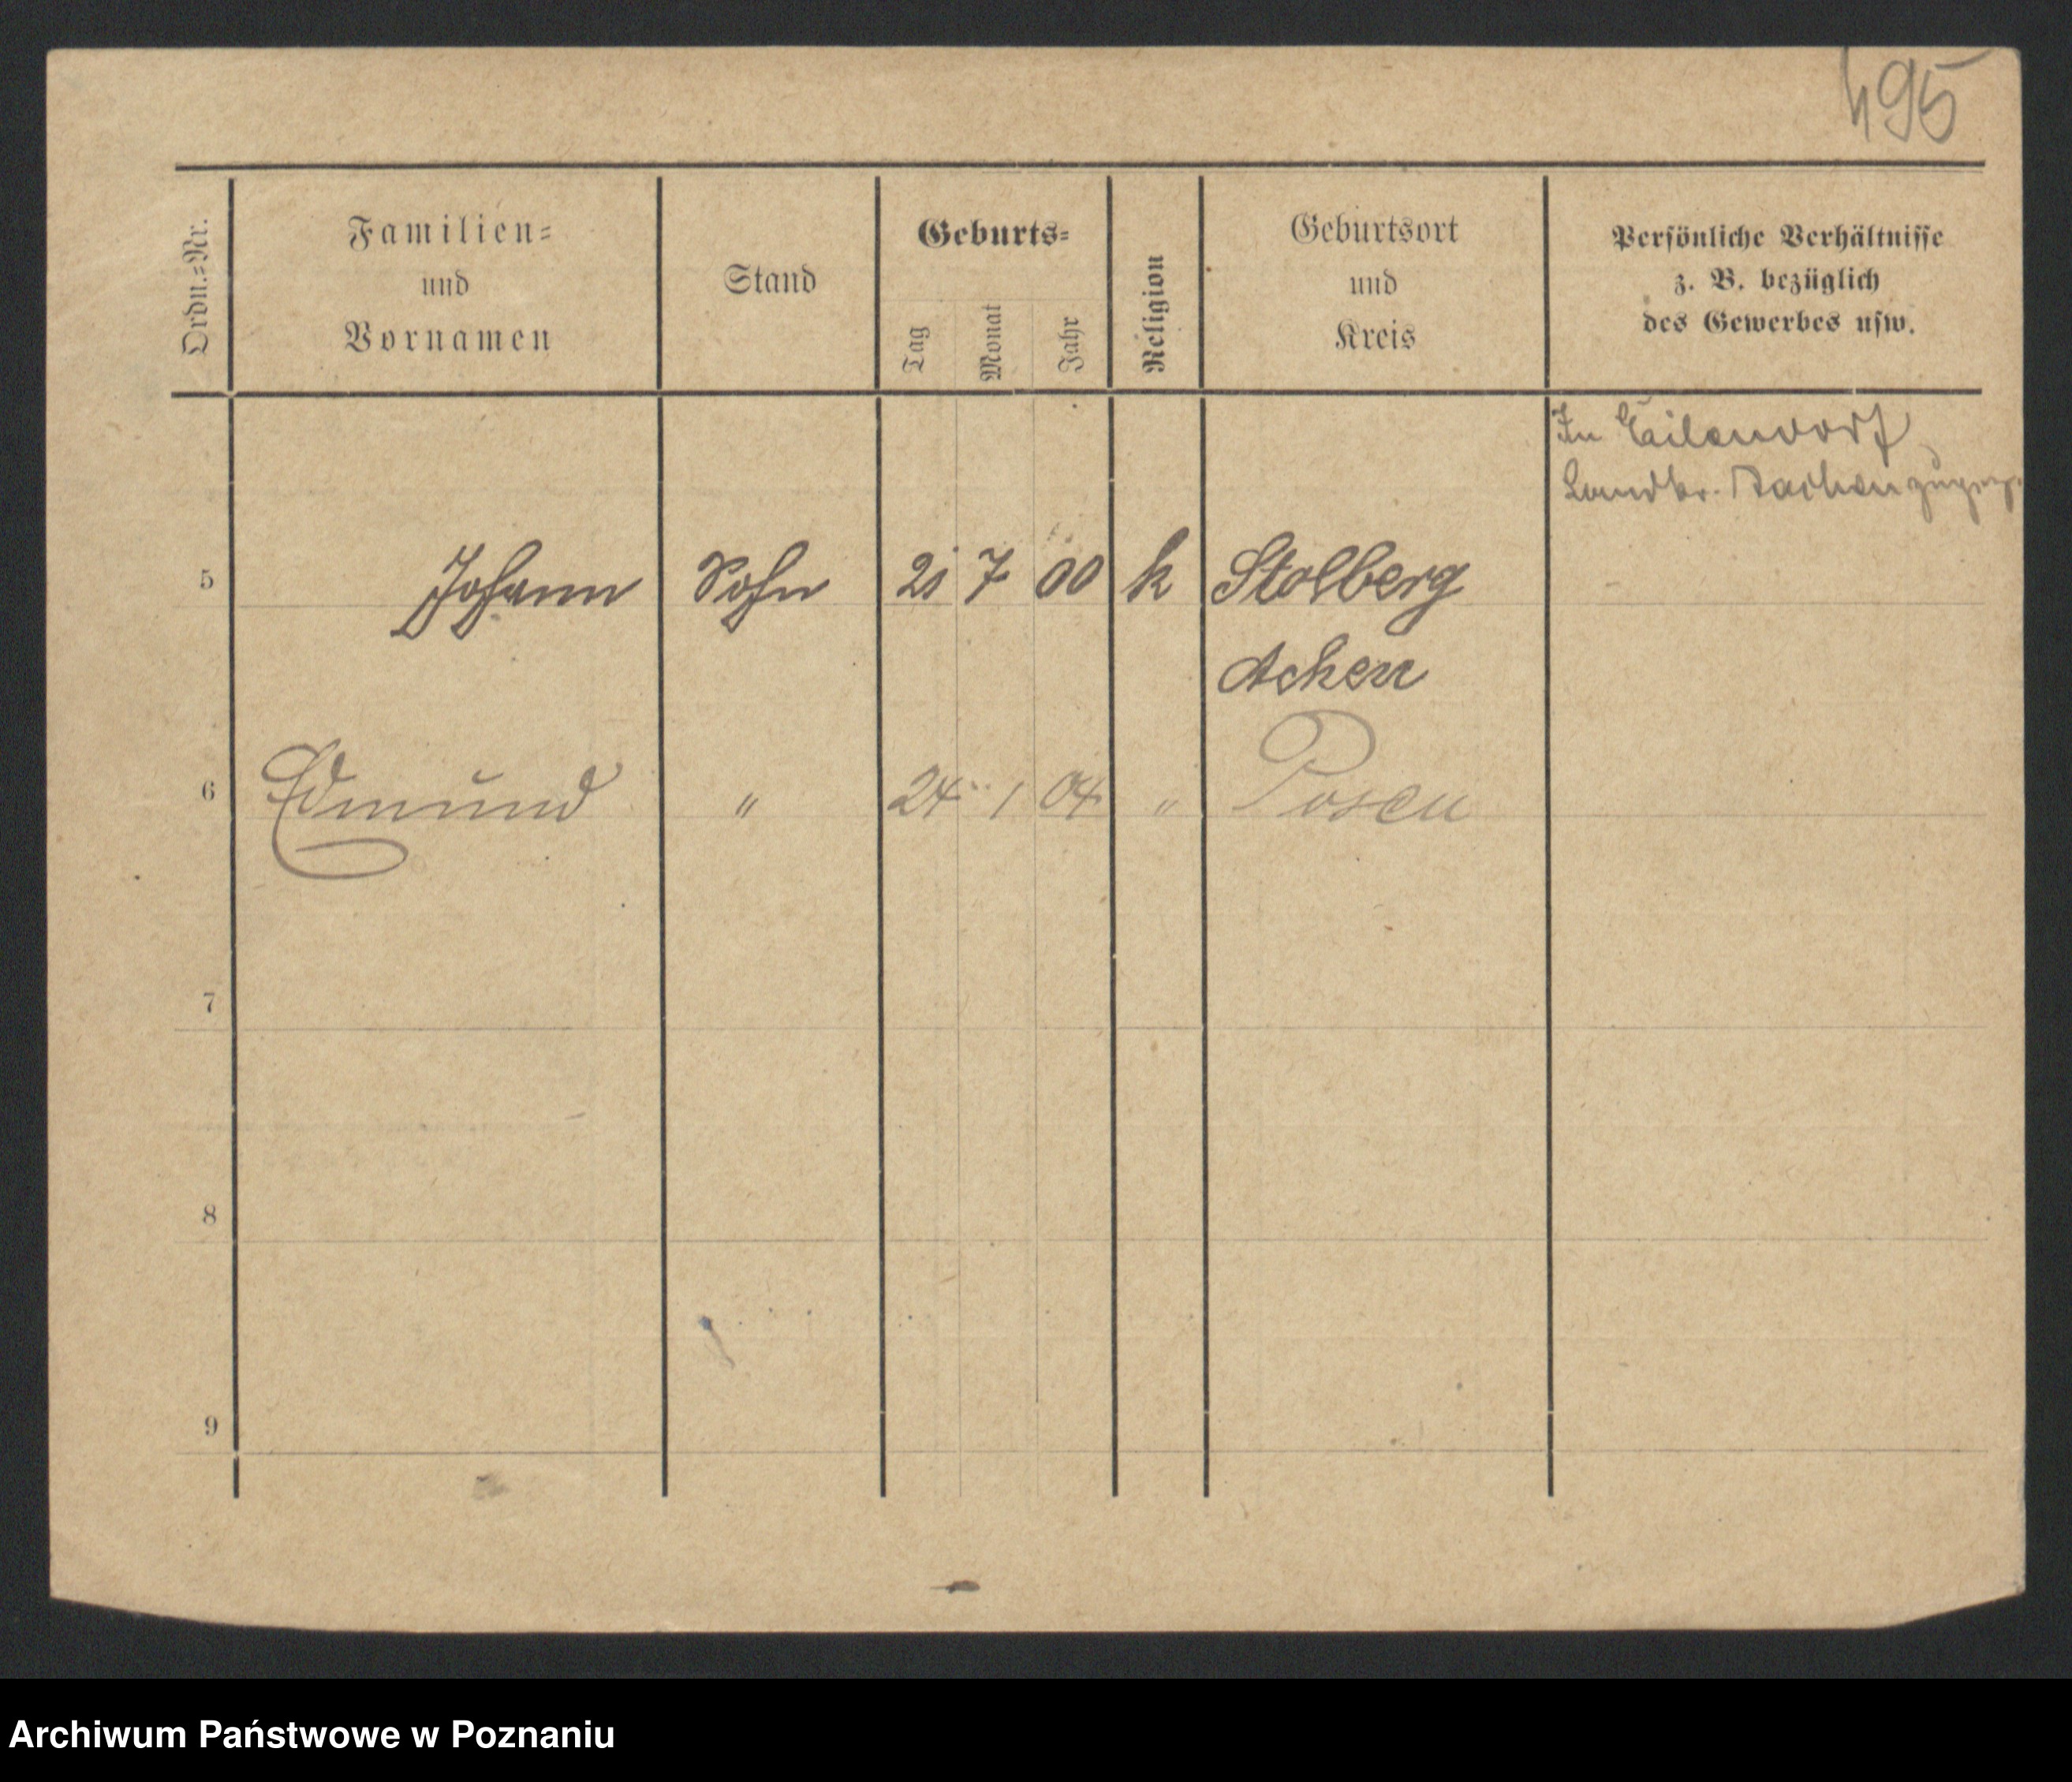 495
Ordn.=Nr.
Familien=
und
Vornamen
Stand
Geburts=
Tag Monat Jahr
Religion
Geburtsort
und
Kreis
Persönliche Verhältnisse
z. B. bezüglich
des Gewerbes usw.
In Eilendorf
Landkr. Aachen
5 Johann Sohn 21 7 00 k Stolberg
Achen
6 Edmund " 24 1 04 " Posen
7
8
9
Archiwum Państwowe w Poznaniu